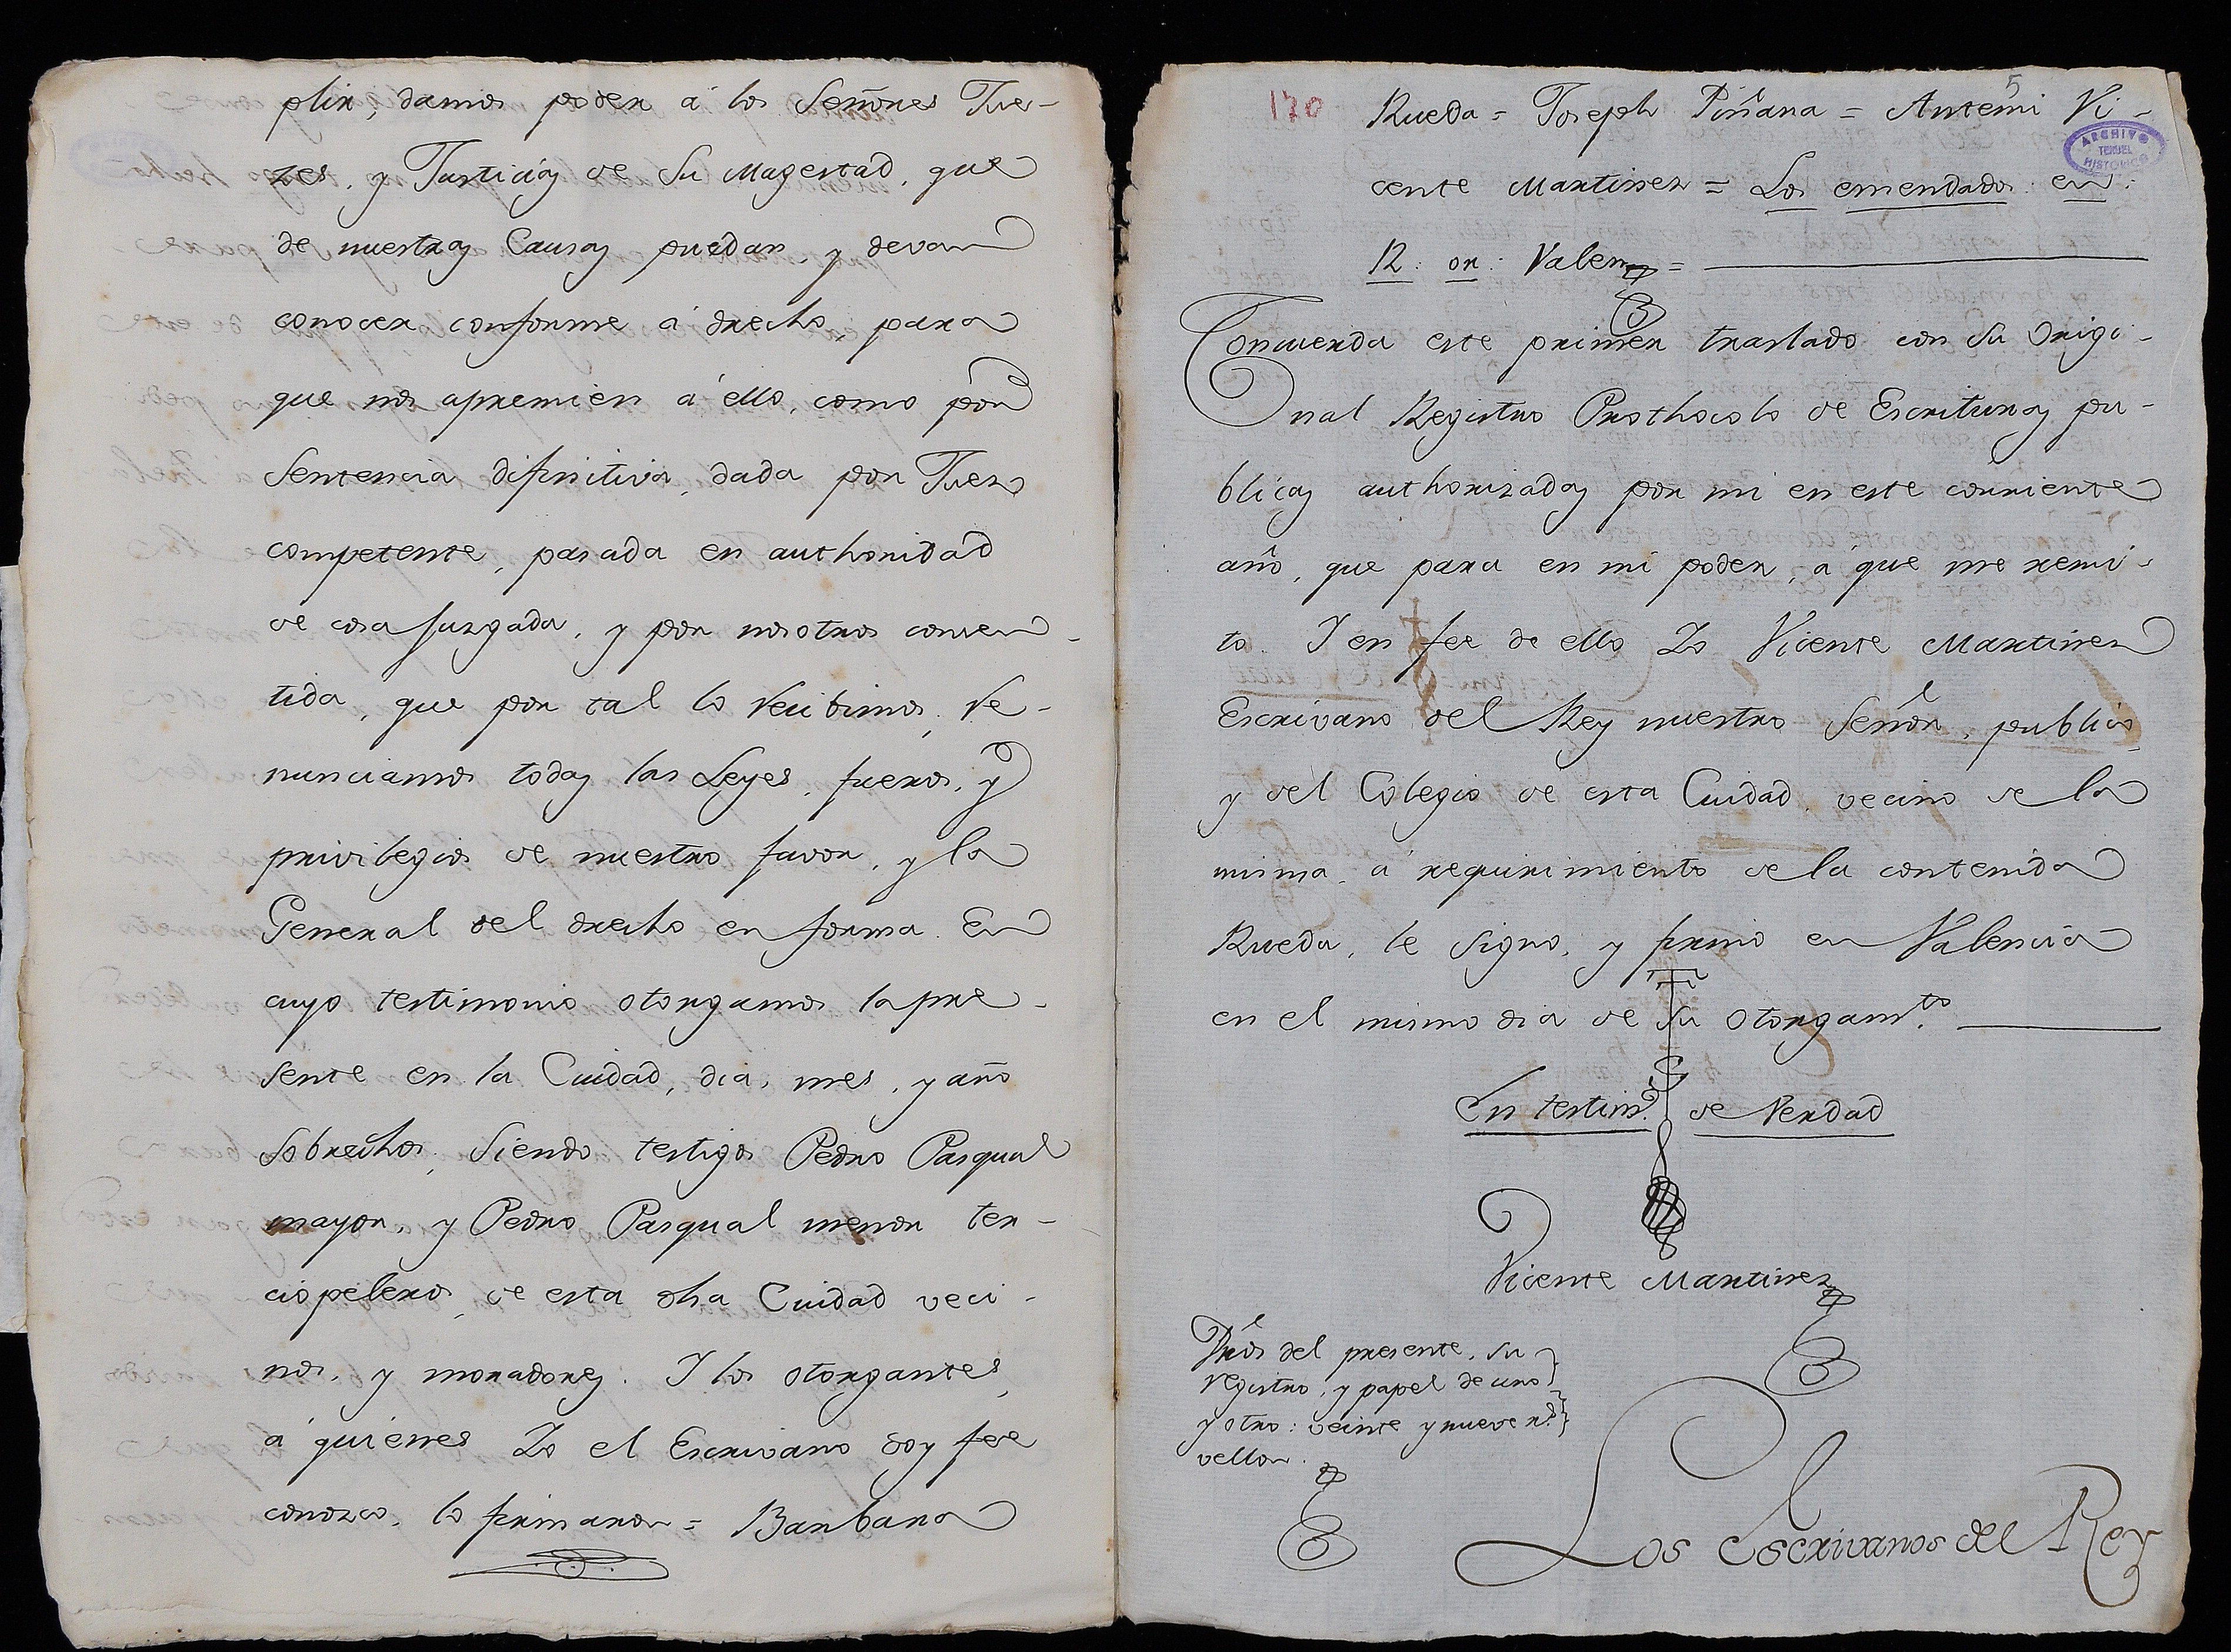 plir, damos poder á los Señores Jue-
zes, y Justicias de Su Magestad, que
de nuestras Causas puedan, y devan
conocer conforme á drecho, para
que nos apremien á ello, como por
Sentencia difinitiva, dada por Juez
competente, pasada en authoridad
de cosa juzgada, y por nosotros consen-
tida, que por tal lo recibimos, re-
nunciamos todas las Leyes, fueros, y
privilegios de nuestro favor, y la
General del drecho en forma. En
cuyo testimonio otorgamos la pre-
sente en la Ciudad, dia, mes, y año
sobredhos, Siendo testigos Pedro Pasqual
mayor, y Pedro Pasqual menor ter-
ciopeleros, de esta dha Ciudad veci-
nos, y moradores. I los otorgantes,
á quienes Yo el Escrivano doy fee
conozco, lo firmaron = Barbara
170
5
Rueda = Joseph Piñana = Antemi Vi-
ARCHIVO
TERUEL
HISTORICO
cente Martinez = Los emendados: en:
R: or: Valen =
Concuerda este primer traslado con su Origi-
nal Registro Prothocolo de Escrituras pu-
blicas authorizadas por mi en este corriente
año, que para en mi poder, á que me remi-
to. I en fee de ello Yo Vicente Martinez
Escrivano del Rey nuestro Señor, publico,
y del Colegio de esta Ciudad, vecino de la
misma, á requirimiento de la contenida
Rueda, le signo, y firmo en Valencia
en el mismo dia de su otorgamto.
En testimo. de Verdad
Vicente Martinez
Dros del presente, su
registro, y papel de uno
y otro: veinte y nueve rs.
vellon.
Los Escrivanos del Rey